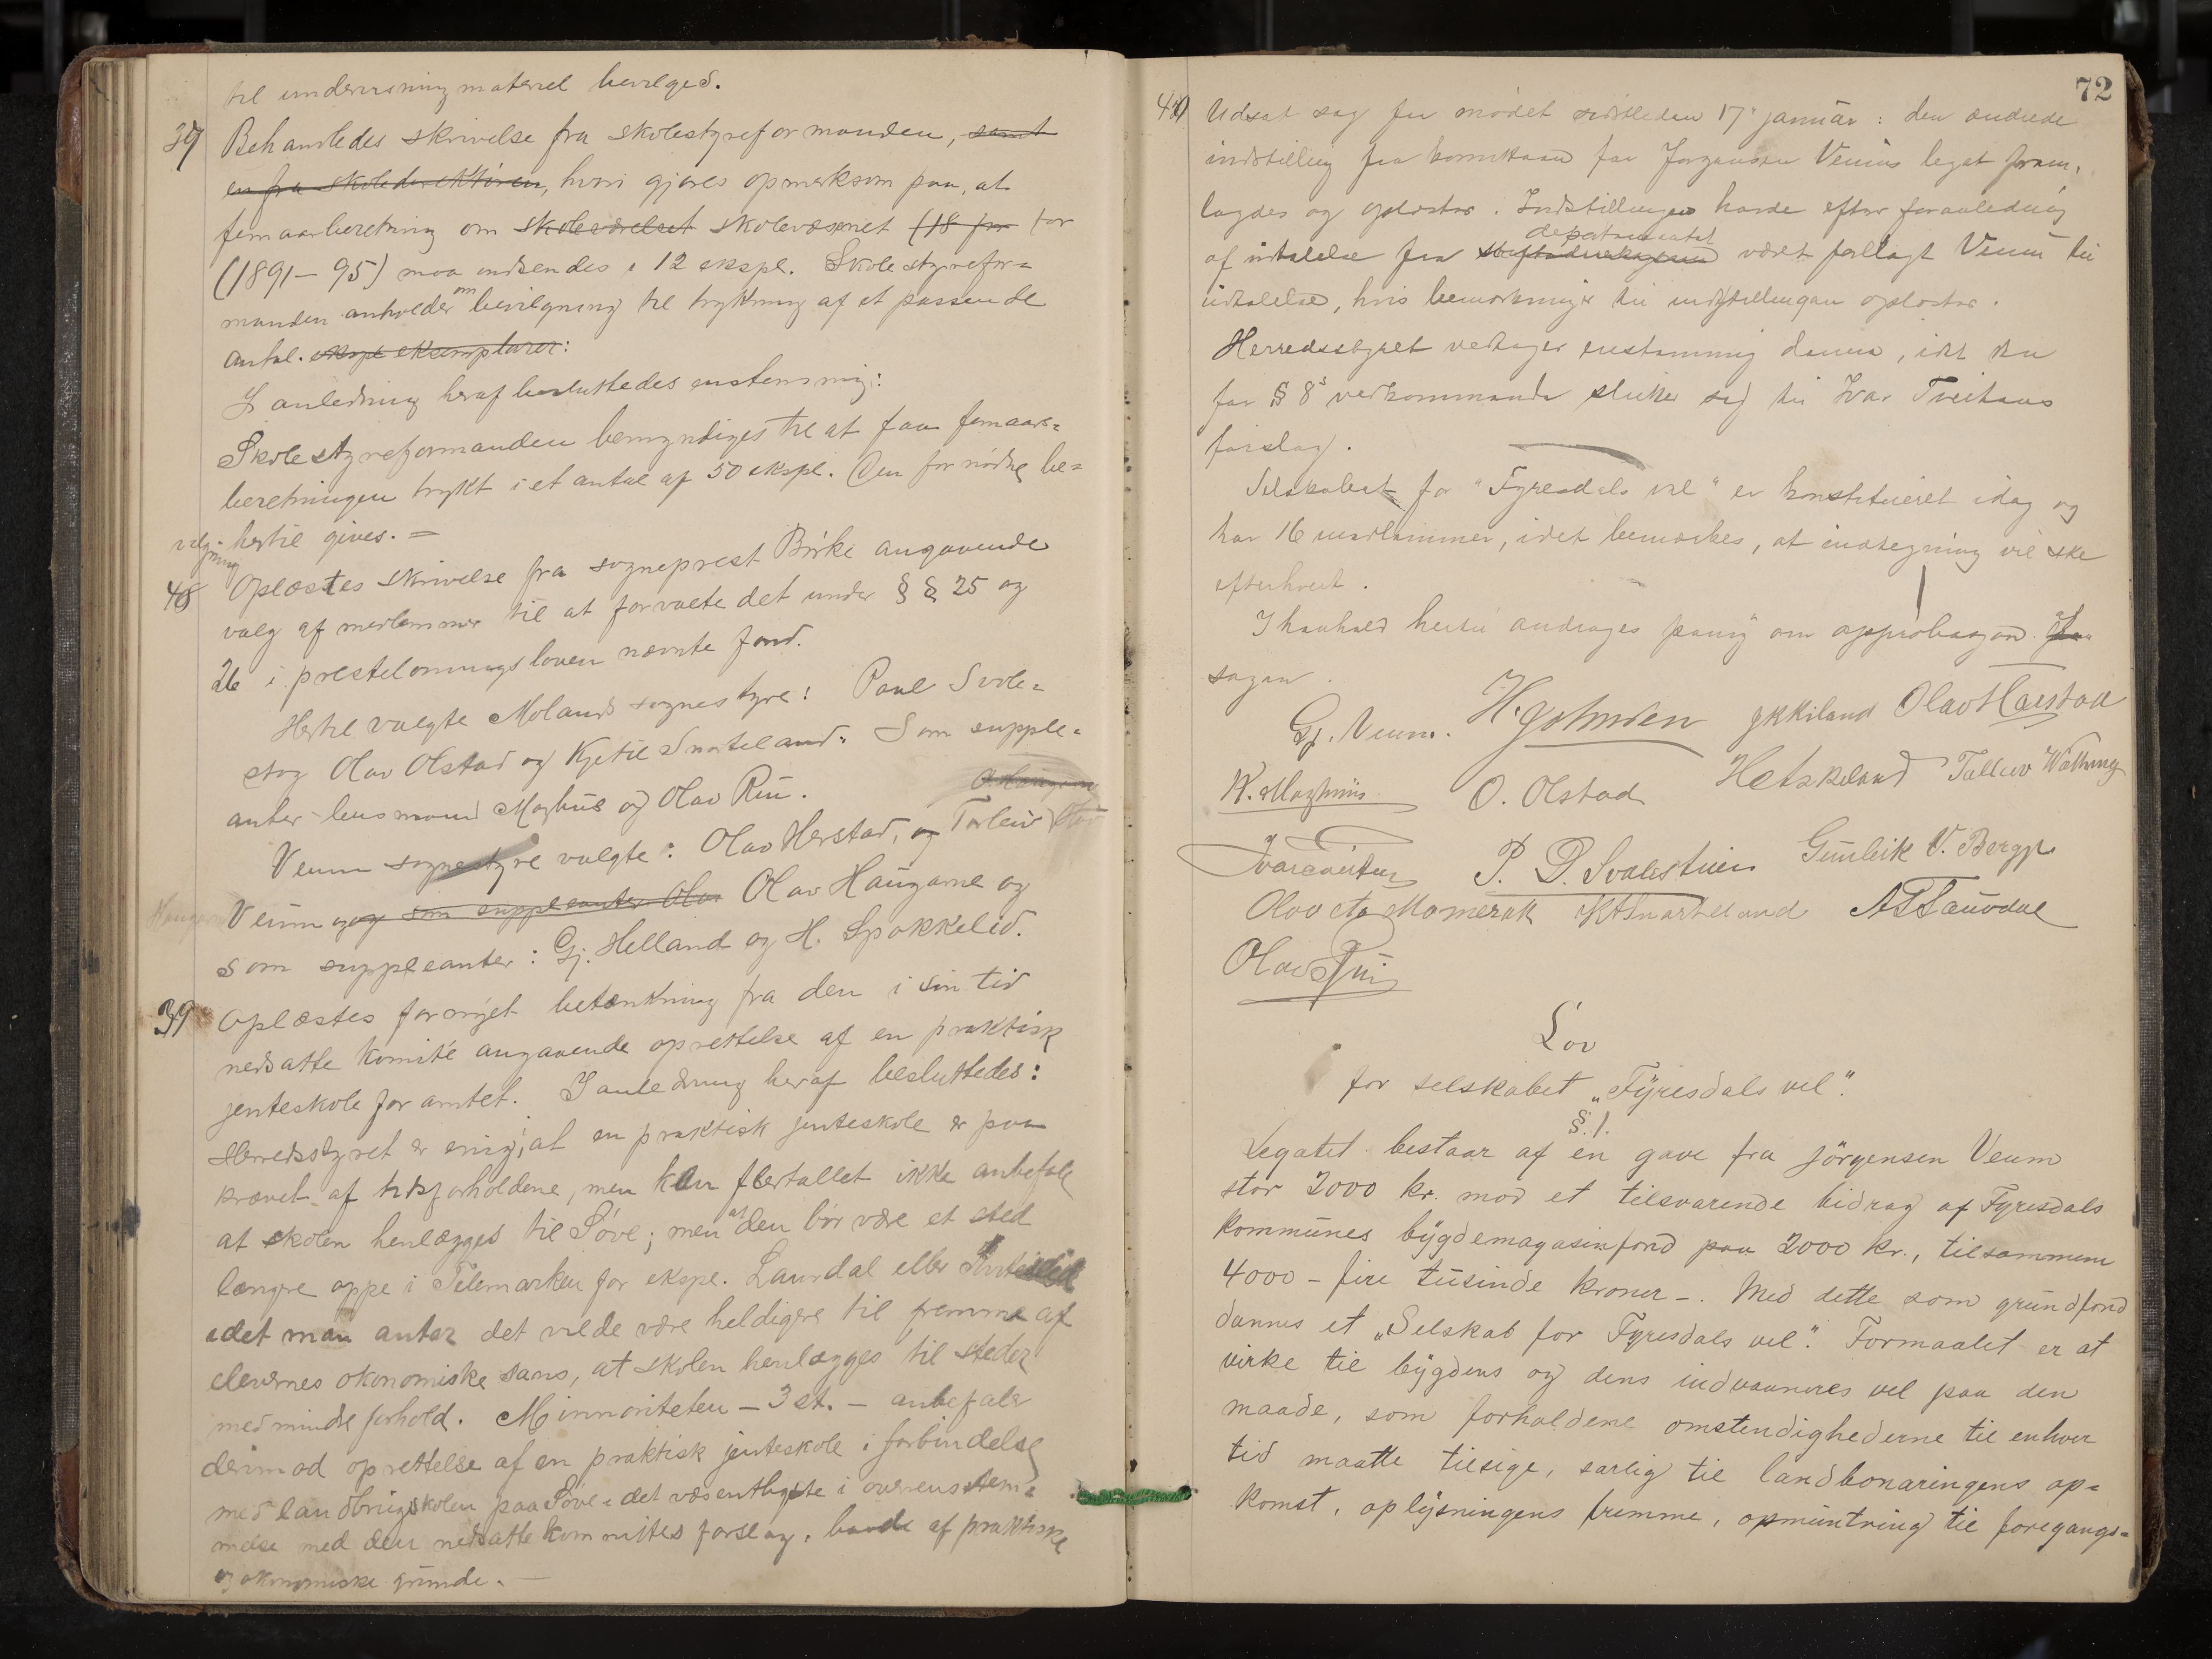 til undervisningmateriel bevilges.
37 Behandledes skrivelse fra skolestyreformanden, samt
en fra skoledirektören, hvori gjøres opmerksom paa, at
femaarberetning om skoleværelset skolevæsenet (18 for
(1891-95) maa indsendes i 12 expl. Skolestyrefor=
manden anholder om bevilgning til trykning af et passende
antal. expl eksemplarer:
I anledning heraf besluttedes enstemmig:
Skolestyreformanden bemyndiges til at faa femaars=
beretningen trykt i et antal af 50 ekspl. Den fornødne be=
vilgning hertil gives. =
48 Oplæstes skrivelse fra sogneprest Birke angaaende
valg af medlemmer til at forvalte det under § § 25 og
26 i prestelønningsloven nævnte fond.
Hertil valgte Molands sognestyre: Paul Svole=
stog Olav Olstad og Kjetil Snarteland. Som supple=
anter lensmand Maghus og Olav Rui.
Veum sognestyre valgte: Olav Herstad, og Torleiv
Veum og som suppleanter Olav Olav Haugarne og
som suppleanter: Gj. Helland og H. Spokkelid.
39 Oplæstes fornyet betænkning fra den i sin tid
nedsatte komité angaaende oprettelse af en praktisk
jenteskole for amtet. I anledning heraf besluttedes:
Herredsstyret er enig i, at en praktisk jenteskole er paa
krævet af tidsforholdene, men kan flertallet ikke anbefale
at skolen henlægges til Søve; men at den bör være et sted
længre oppe i Telemarken for ekspl. Laurdal eller
idet man antar det vilde være heldigere til fremme af
elevernes økonomiske sans, at skolen henlægges til steder
med mindre forhold. Minnoriteten - 3 st. - anbefaler
derimod oprettelse af en praktisk jenteskole i forbindelse
med landbrugsskolen paa Søve i det væsentligste i overensstem=
melse med den nedsatte kommittes forslag, baade af praktiske
og økonomiske grunde. -
72
40 Udsat sag fra mødet sidstleden 17 januar: den ændrede
indstilling fra komiteen for Jørgensen Veums legat frem-
lagdes og oplæstes. Indstillingen havde efter foranledning
departementet
af udtalelse fra været forelagt Veum til
udtalelse, hvis bemerkninger til indstillingen oplæstes.
Herredsstyret vedtager enstemmig denne, idet den
for § 8s vedkommende slutter sig til Ivar Tveitens
forslag.
Selskabet for "Fyresdals vel" er konstitueret idag og
har 16 medlemmer, idet bemærkes, at indtegning vil ske
efterhvert.
I henhold hertil andrages paany om approbation
sagen.
Gj. Veum. H. Gohnsden Olav Haerstad
K. Maghuus O. Olstad H Etskeland Talleiv
Ivar Tveiten P. P. Svalestuen Gunleik V. Berge
Olav Momerak KASnarteland
Olav Rui
Lov
for selskabet „Fyresdals vel".
§. 1.
Legatet bestaar af en gave fra Jörgensen Veum
stor 2000 kr. mod et tilsvarende bidrag af Fyresdals
kommunes bygdemagasinfond paa 2000 kr., tilsammen
4000 - fire tusinde kroner -. Med dette som grundfond
dannes et „Selskab for Fyresdals vel". Formaalet er at
virke til bygdens og dens indvaaneres vel paa den
maade, som forholdene omstendighederne til enhver
tid maatte tilsige, særlig til landbonæringens op=
komst, oplysningens fremme, opmuntring til foregangs=